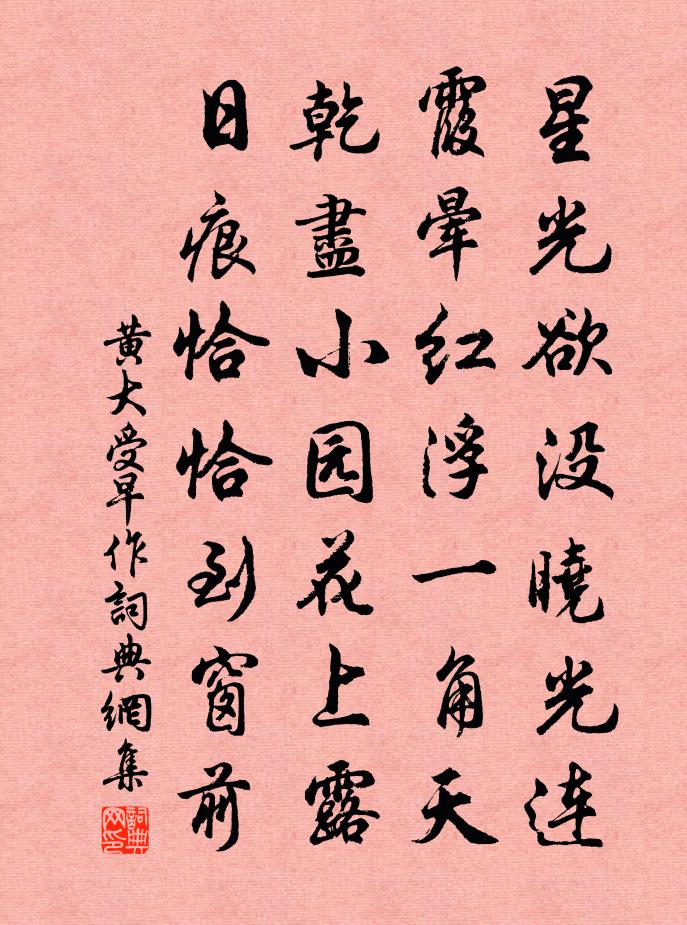 星光欲没曉光連
霞暈紅浮一角天
乾盡小园花上露
日痕恰恰到窗前
黄大受早作詞典網集
詞典网印